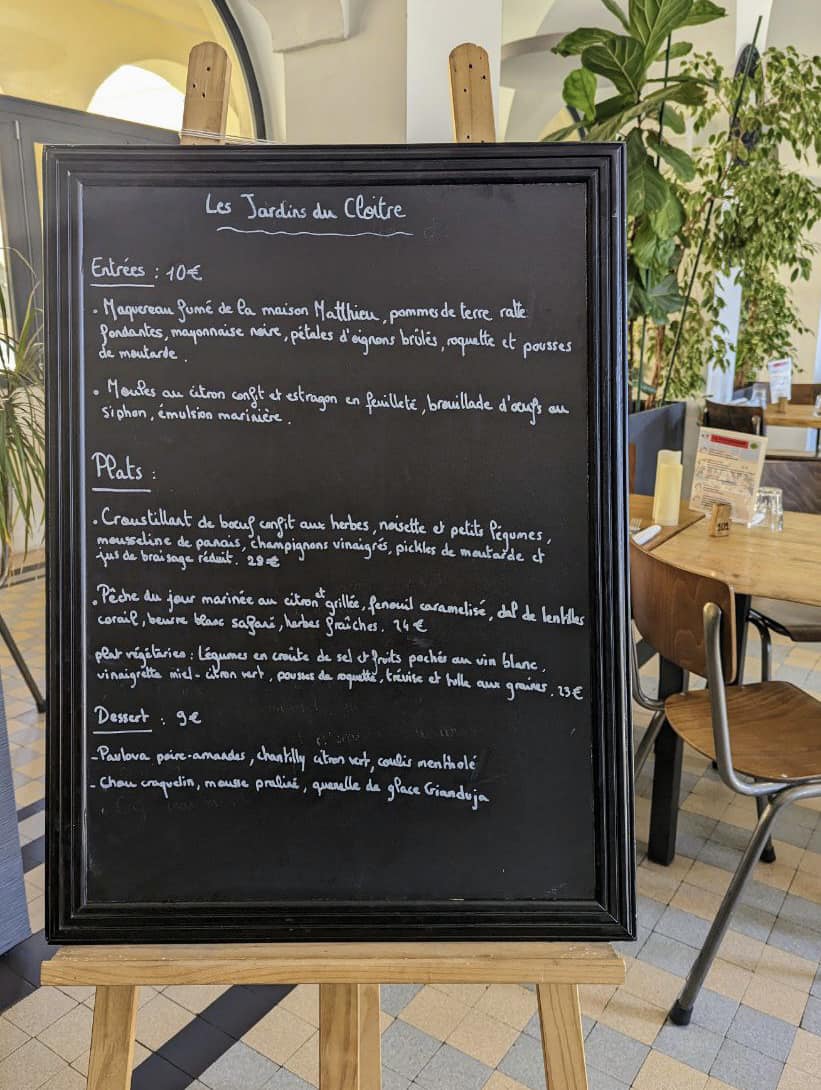 Les Jardins du Cloître
Entrées : 10€
• Maquereau fumé de la maison Matthieu, pommes de terre ratte
fondantes, mayonnaise noire, pétales d'oignons brûlés, roquette et pousses
de moutarde.
• Moules au citron confit et estragon en feuilleté, brouillade d'œufs au
siphon, émulsion marinière.
Plats :
• Croustillant de bœuf confit aux herbes, noisette et petits légumes,
mousseline de panais, champignons vinaigrés, pickles de moutarde et
jus de braisage réduit. 28€
• Pêche du jour marinée au citron et grillée, fenouil caramelisé, dal de lentilles
corail, beurre blanc safrané, herbes fraîches. 24€
plat végétarien : Légumes en croûte de sel et fruits pochés au vin blanc,
vinaigrette miel-citron vert, pousses de roquette, trévise et tuile aux graines. 23€
Dessert : 9€
- Pavlova poire-amandes, chantilly citron vert, coulis mentholé
- Chou craquelin, mousse praliné, quenelle de glace Gianduja